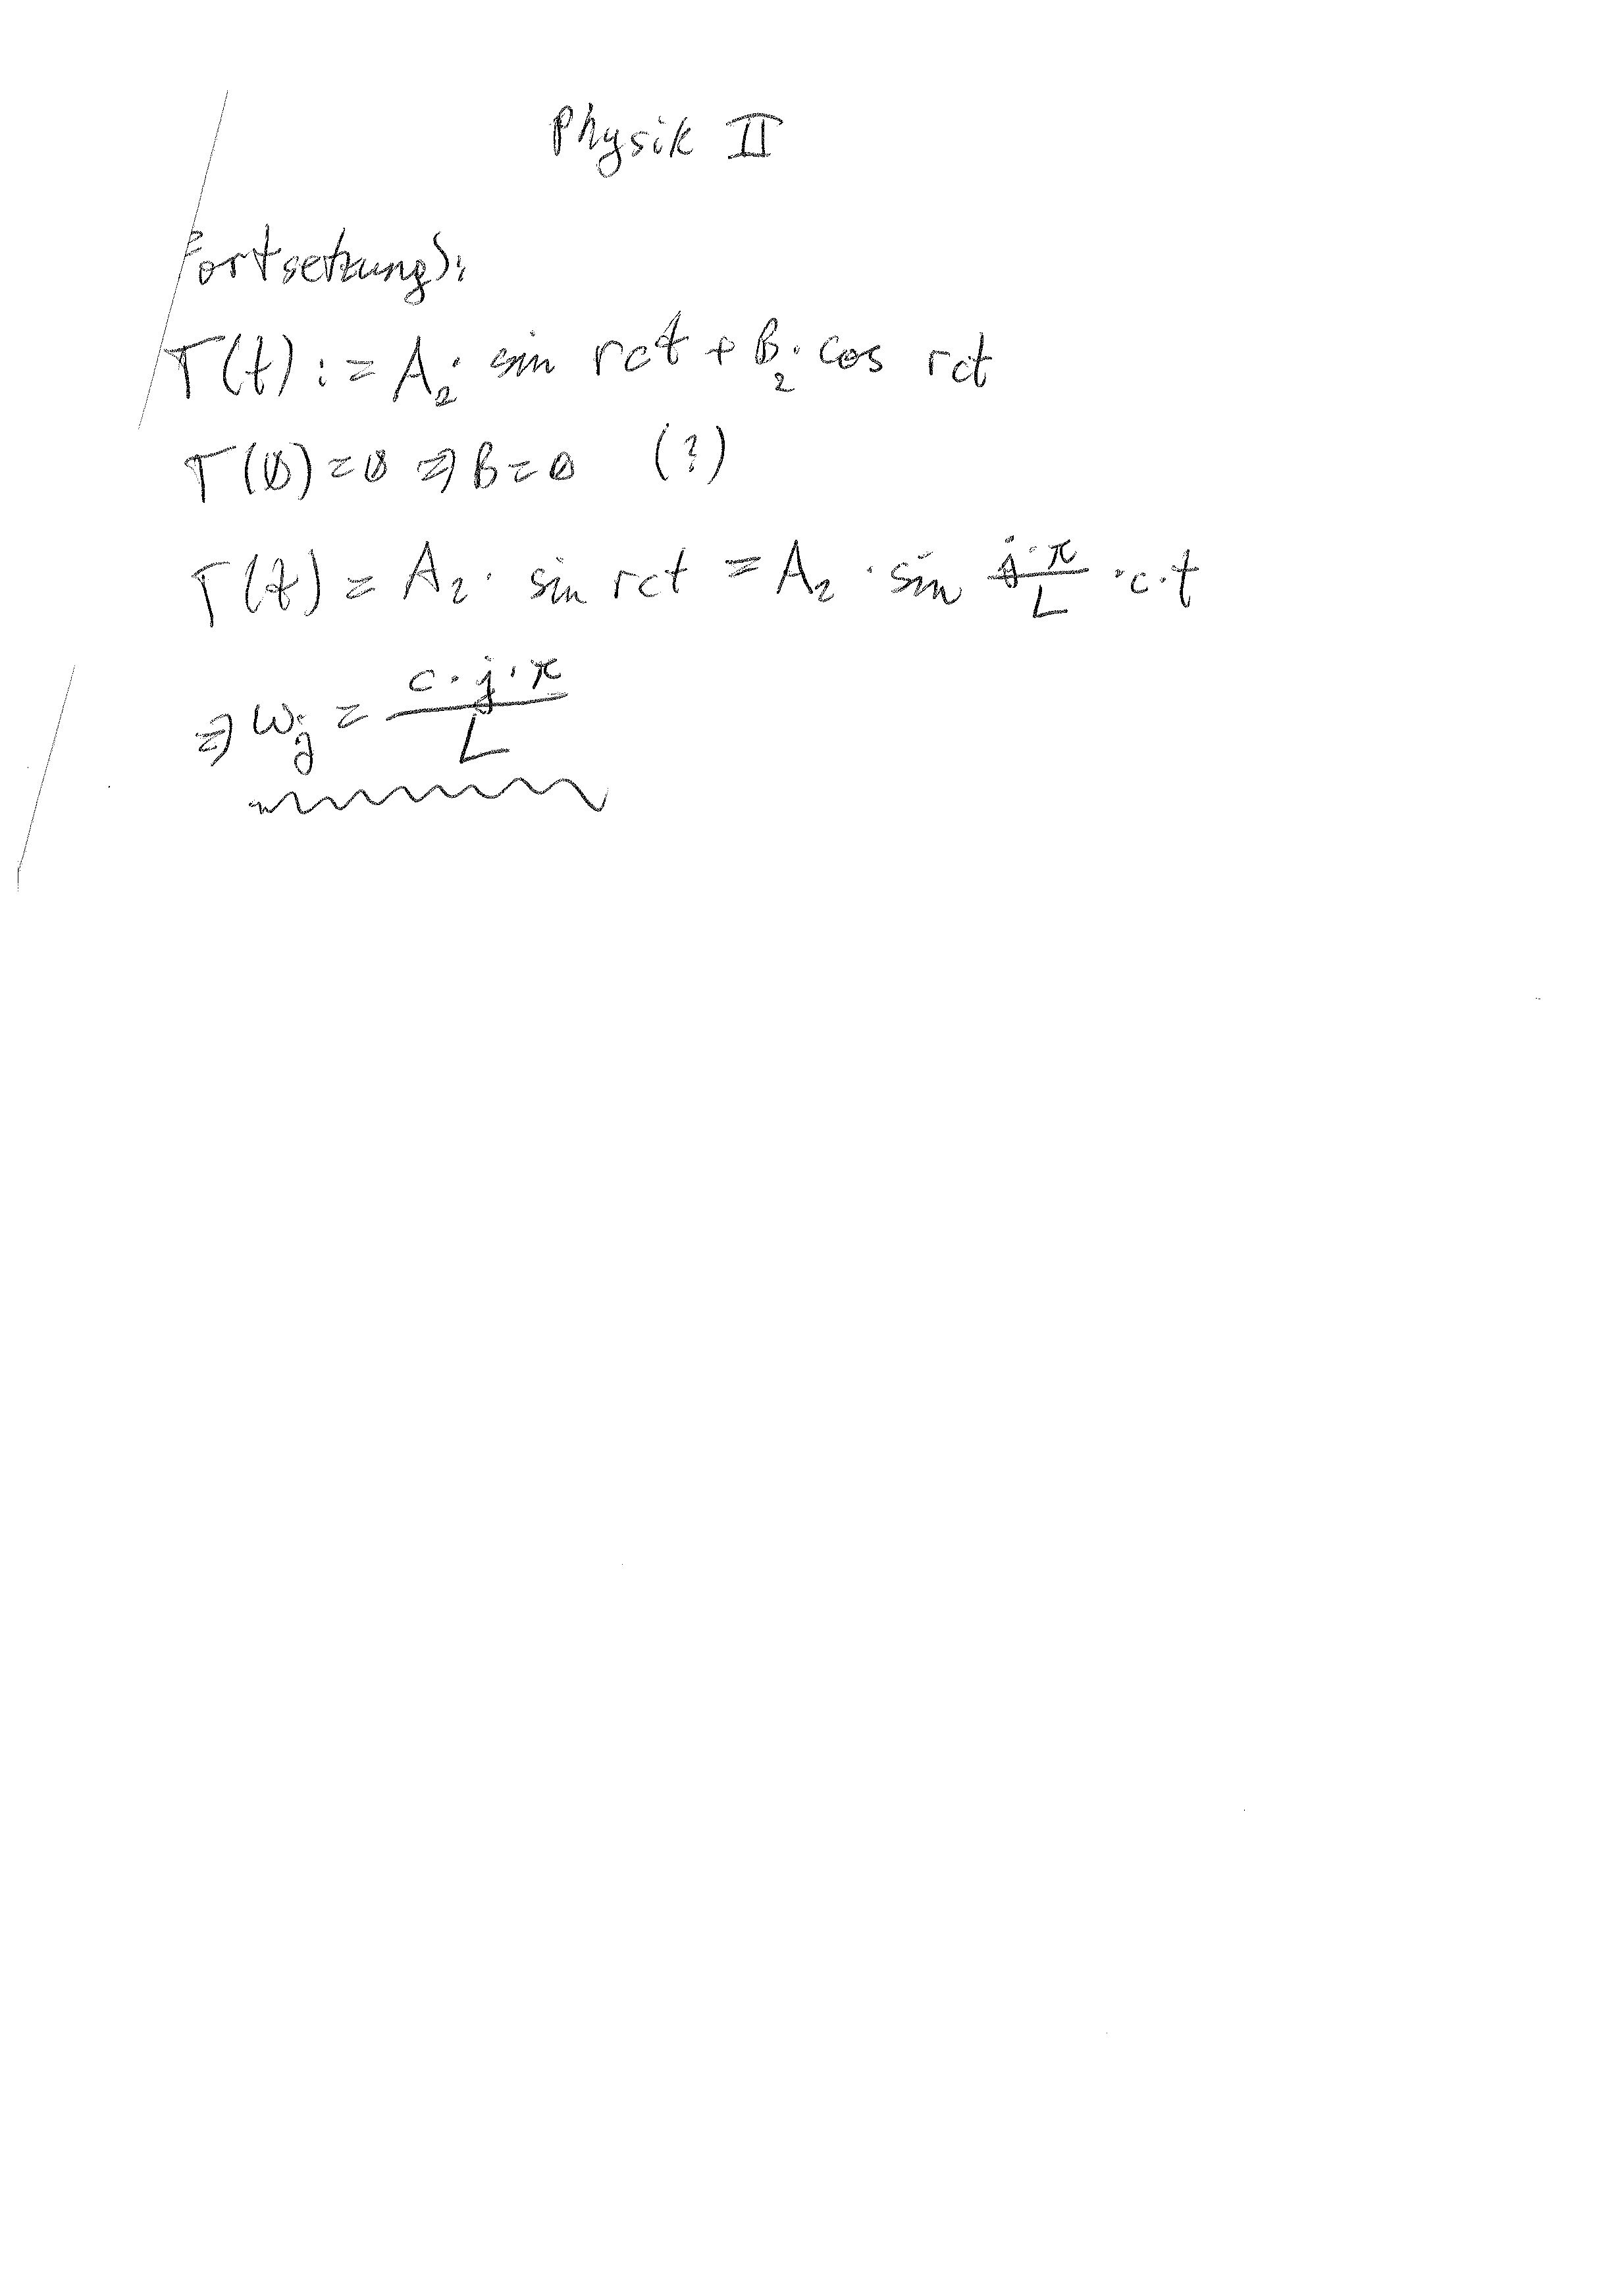 Physik II
Fortsetzung):
T(t) := A₂ · sin rct + B₂ · cos rct
T(0) = 0 ⇒ B = 0 (?)
T(t) = A₂ · sin rct = A₂ · sin j·π/L · c · t
⇒ ωj = c·j·π/L